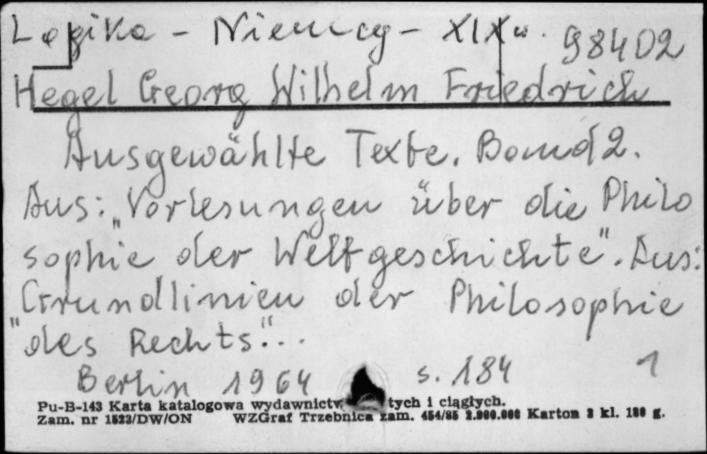 Logika - Niemcy - XIX w. 98402
Hegel Georg Wilhelm Friedrich
Ausgewählte Texte. Band 2.
Aus: "Vorlesungen über die Philo
sophie der Weltgeschichte". Aus:
"Grundlinien der Philosophie
des Rechts"...
Berlin 1964 s. 184 1
Pu-B-143 Karta katalogowa wydawnictw tych i ciągłych.
Zam. nr 1523/DW/ON WZGraf Trzebnica zam. 454/85 2.900.000 Karton 3 kl. 180 g.